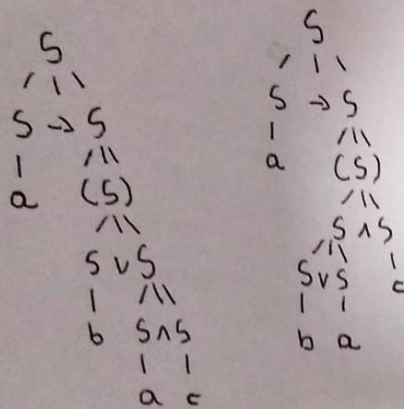 S
S → S
a
(S)
S ∨ S
b
S ∧ S
a c
S
S → S
a
(S)
S ∧ S
S ∨ S
c
b a